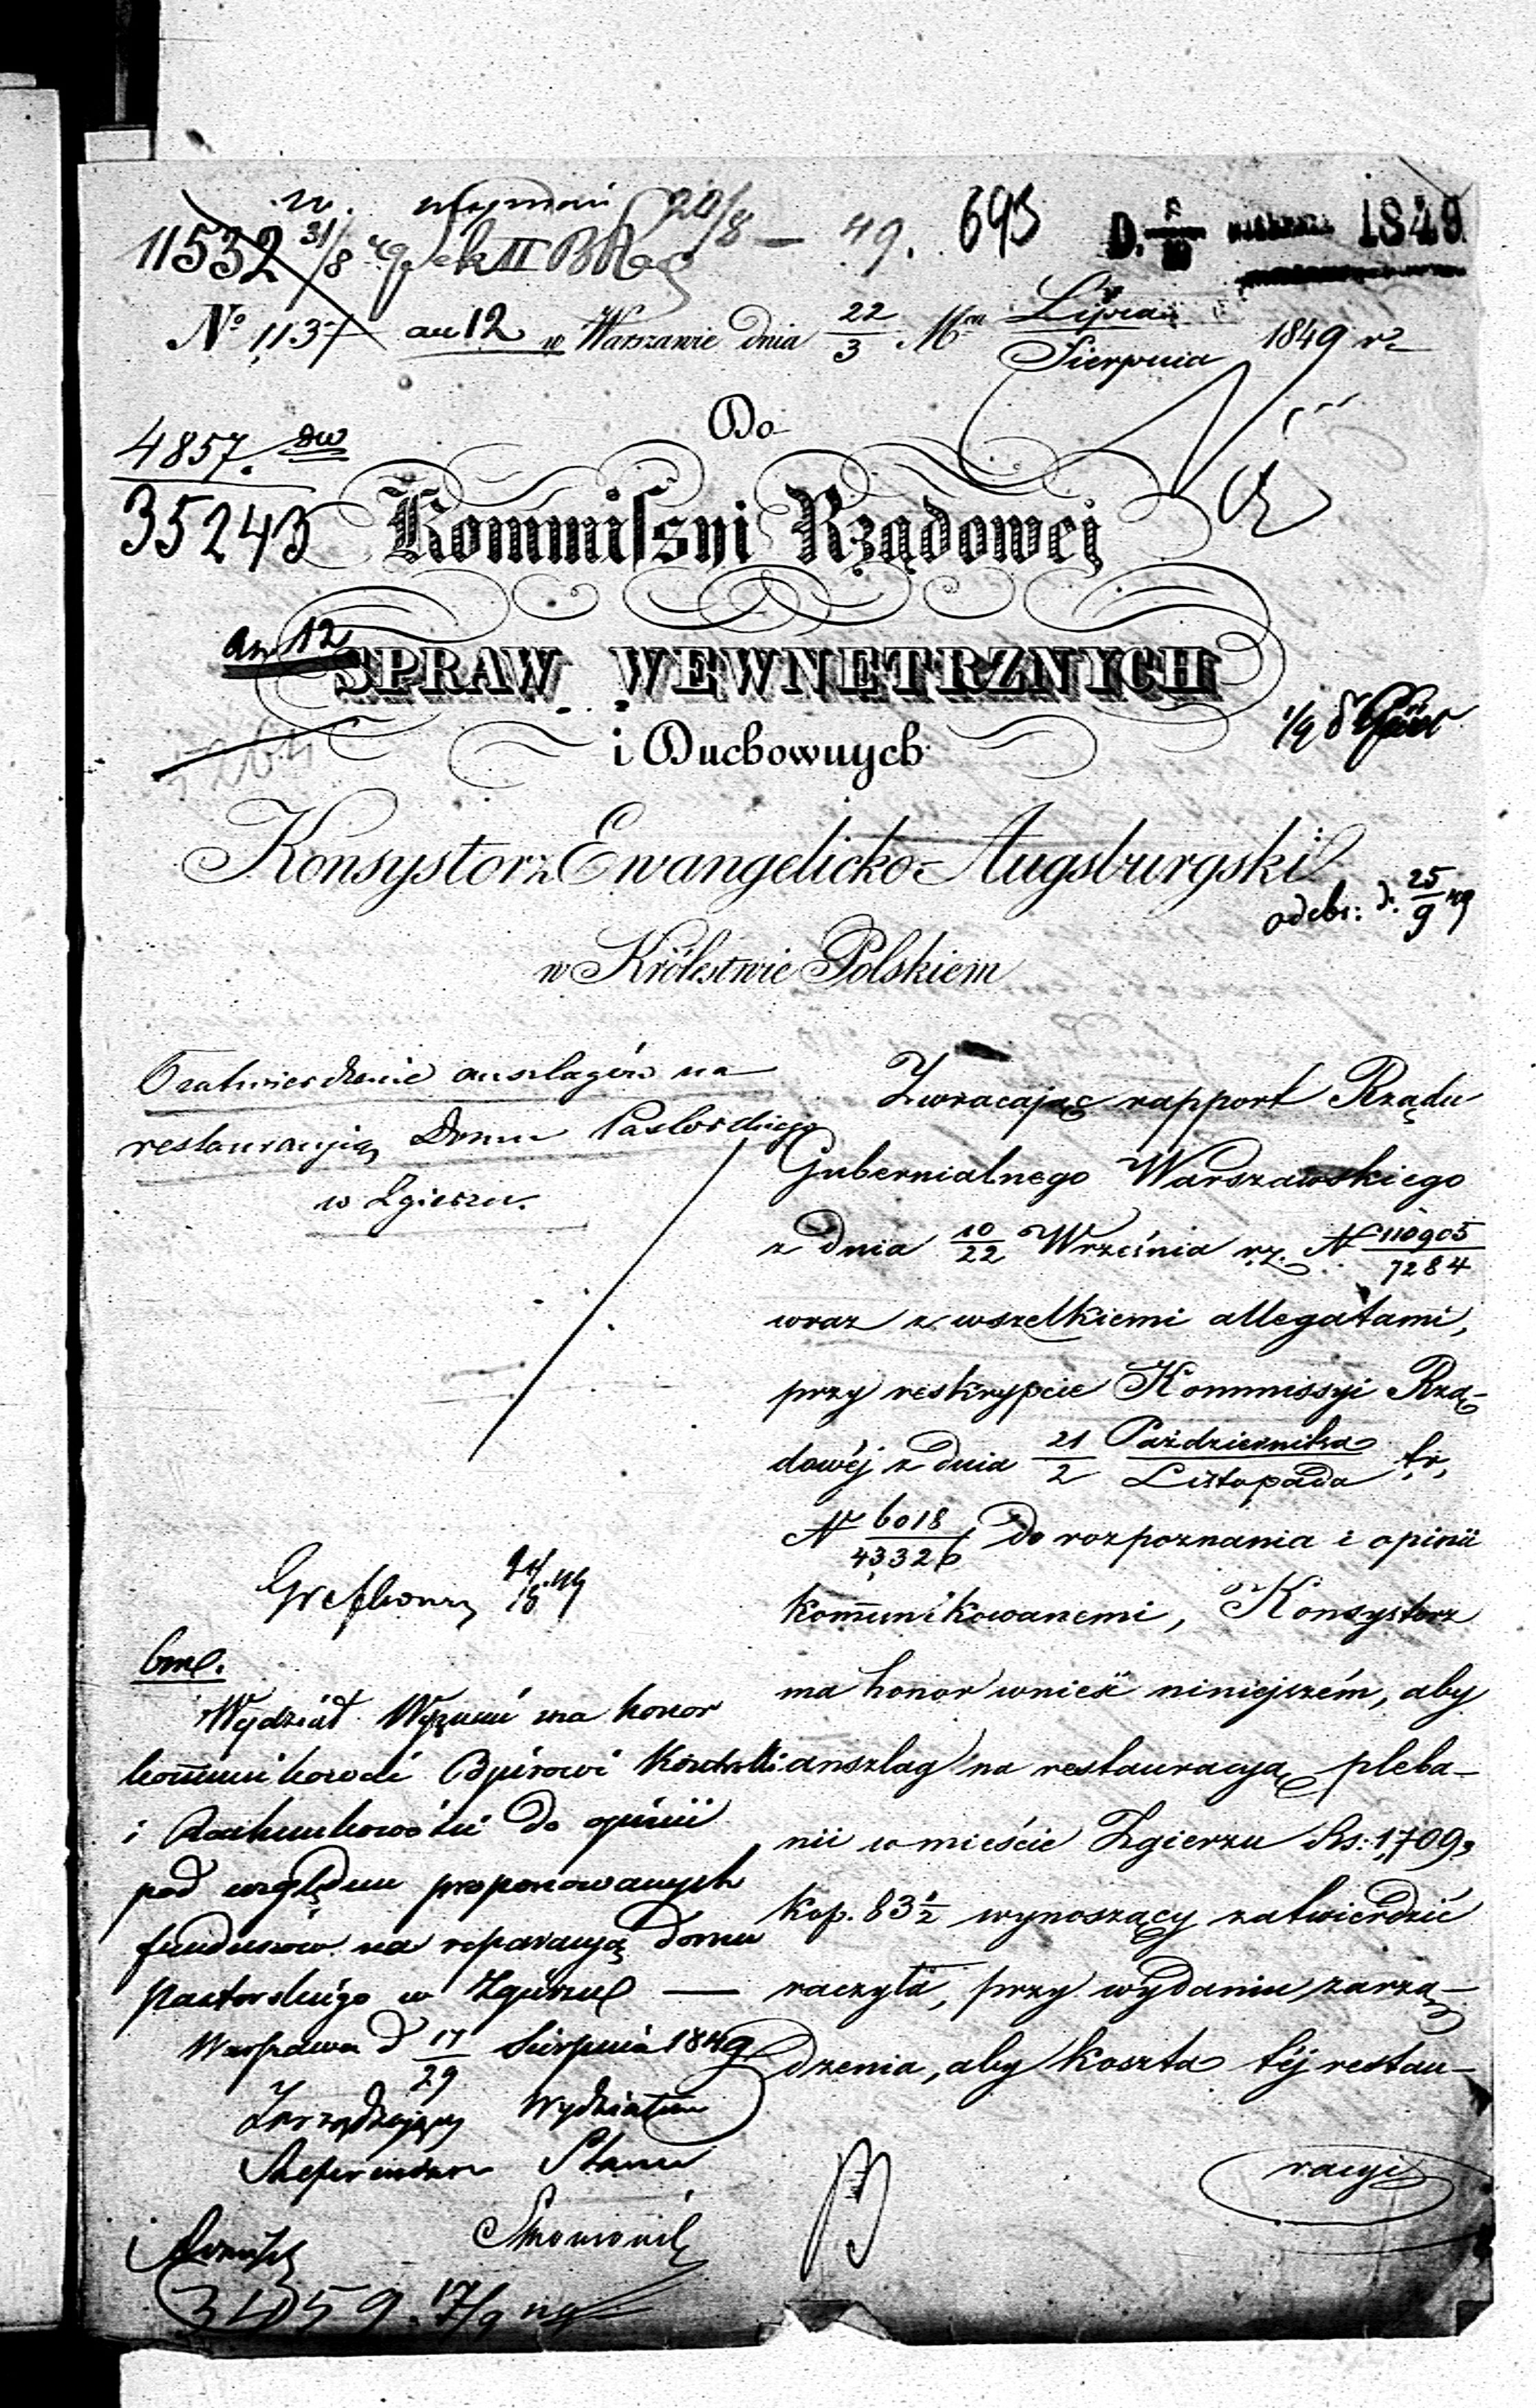 11532 31/8
20/8 — 49. 693
1849
No 1137 an 12 w Warszawie dnia 22/3 Mca Lipca/Sierpnia 1849 r
Do
4857.
35243
Kommissyi Rządowej
an 12
SPRAW WEWNĘTRZNYCH
i Duchownych
Konsystorz Ewangelicko-Augsburgski
odebr: d. 25/9 49
w Królestwie Polskiem
O zatwierdzenie anszlagów na
restauracyią Domu Pastorskiego
w Zgierzu.
Zwracając rapport Rządu
Gubernialnego Warszawskiego
z dnia 10/22 Września r.z. N 110905/7284
wraz z wszelkiemi allegatami,
przy reskrypcie Kommissyi Rzą-
dowéj z dnia 21/2 Października/Listopada t.r.
N 6018/43,326 do rozpoznania i opinii
kom̄unikowanemi, Konsystorz
ma honor wnieść niniejszém, aby
anszlag na restauracyą pleba-
nii w mieście Zgierzu Rs: 1,709,
kop. 83 1/2 wynoszący zatwierdzić
raczyła, przy wydaniu zarzą-
dzenia, aby koszta téj restau-
racyi
Wydział Wyznań ma honor
kom̄unikować Biórowi Kontrolli
i Rachunkowości do opinii
pod względem proponowanych
funduszów na reparacyą Domu
Pastorskiego w Zgierzu —
Warszawa d 17/29 Sierpnia 1849
Zarządzający Wydziałem
Referendarz Stanu
17/9